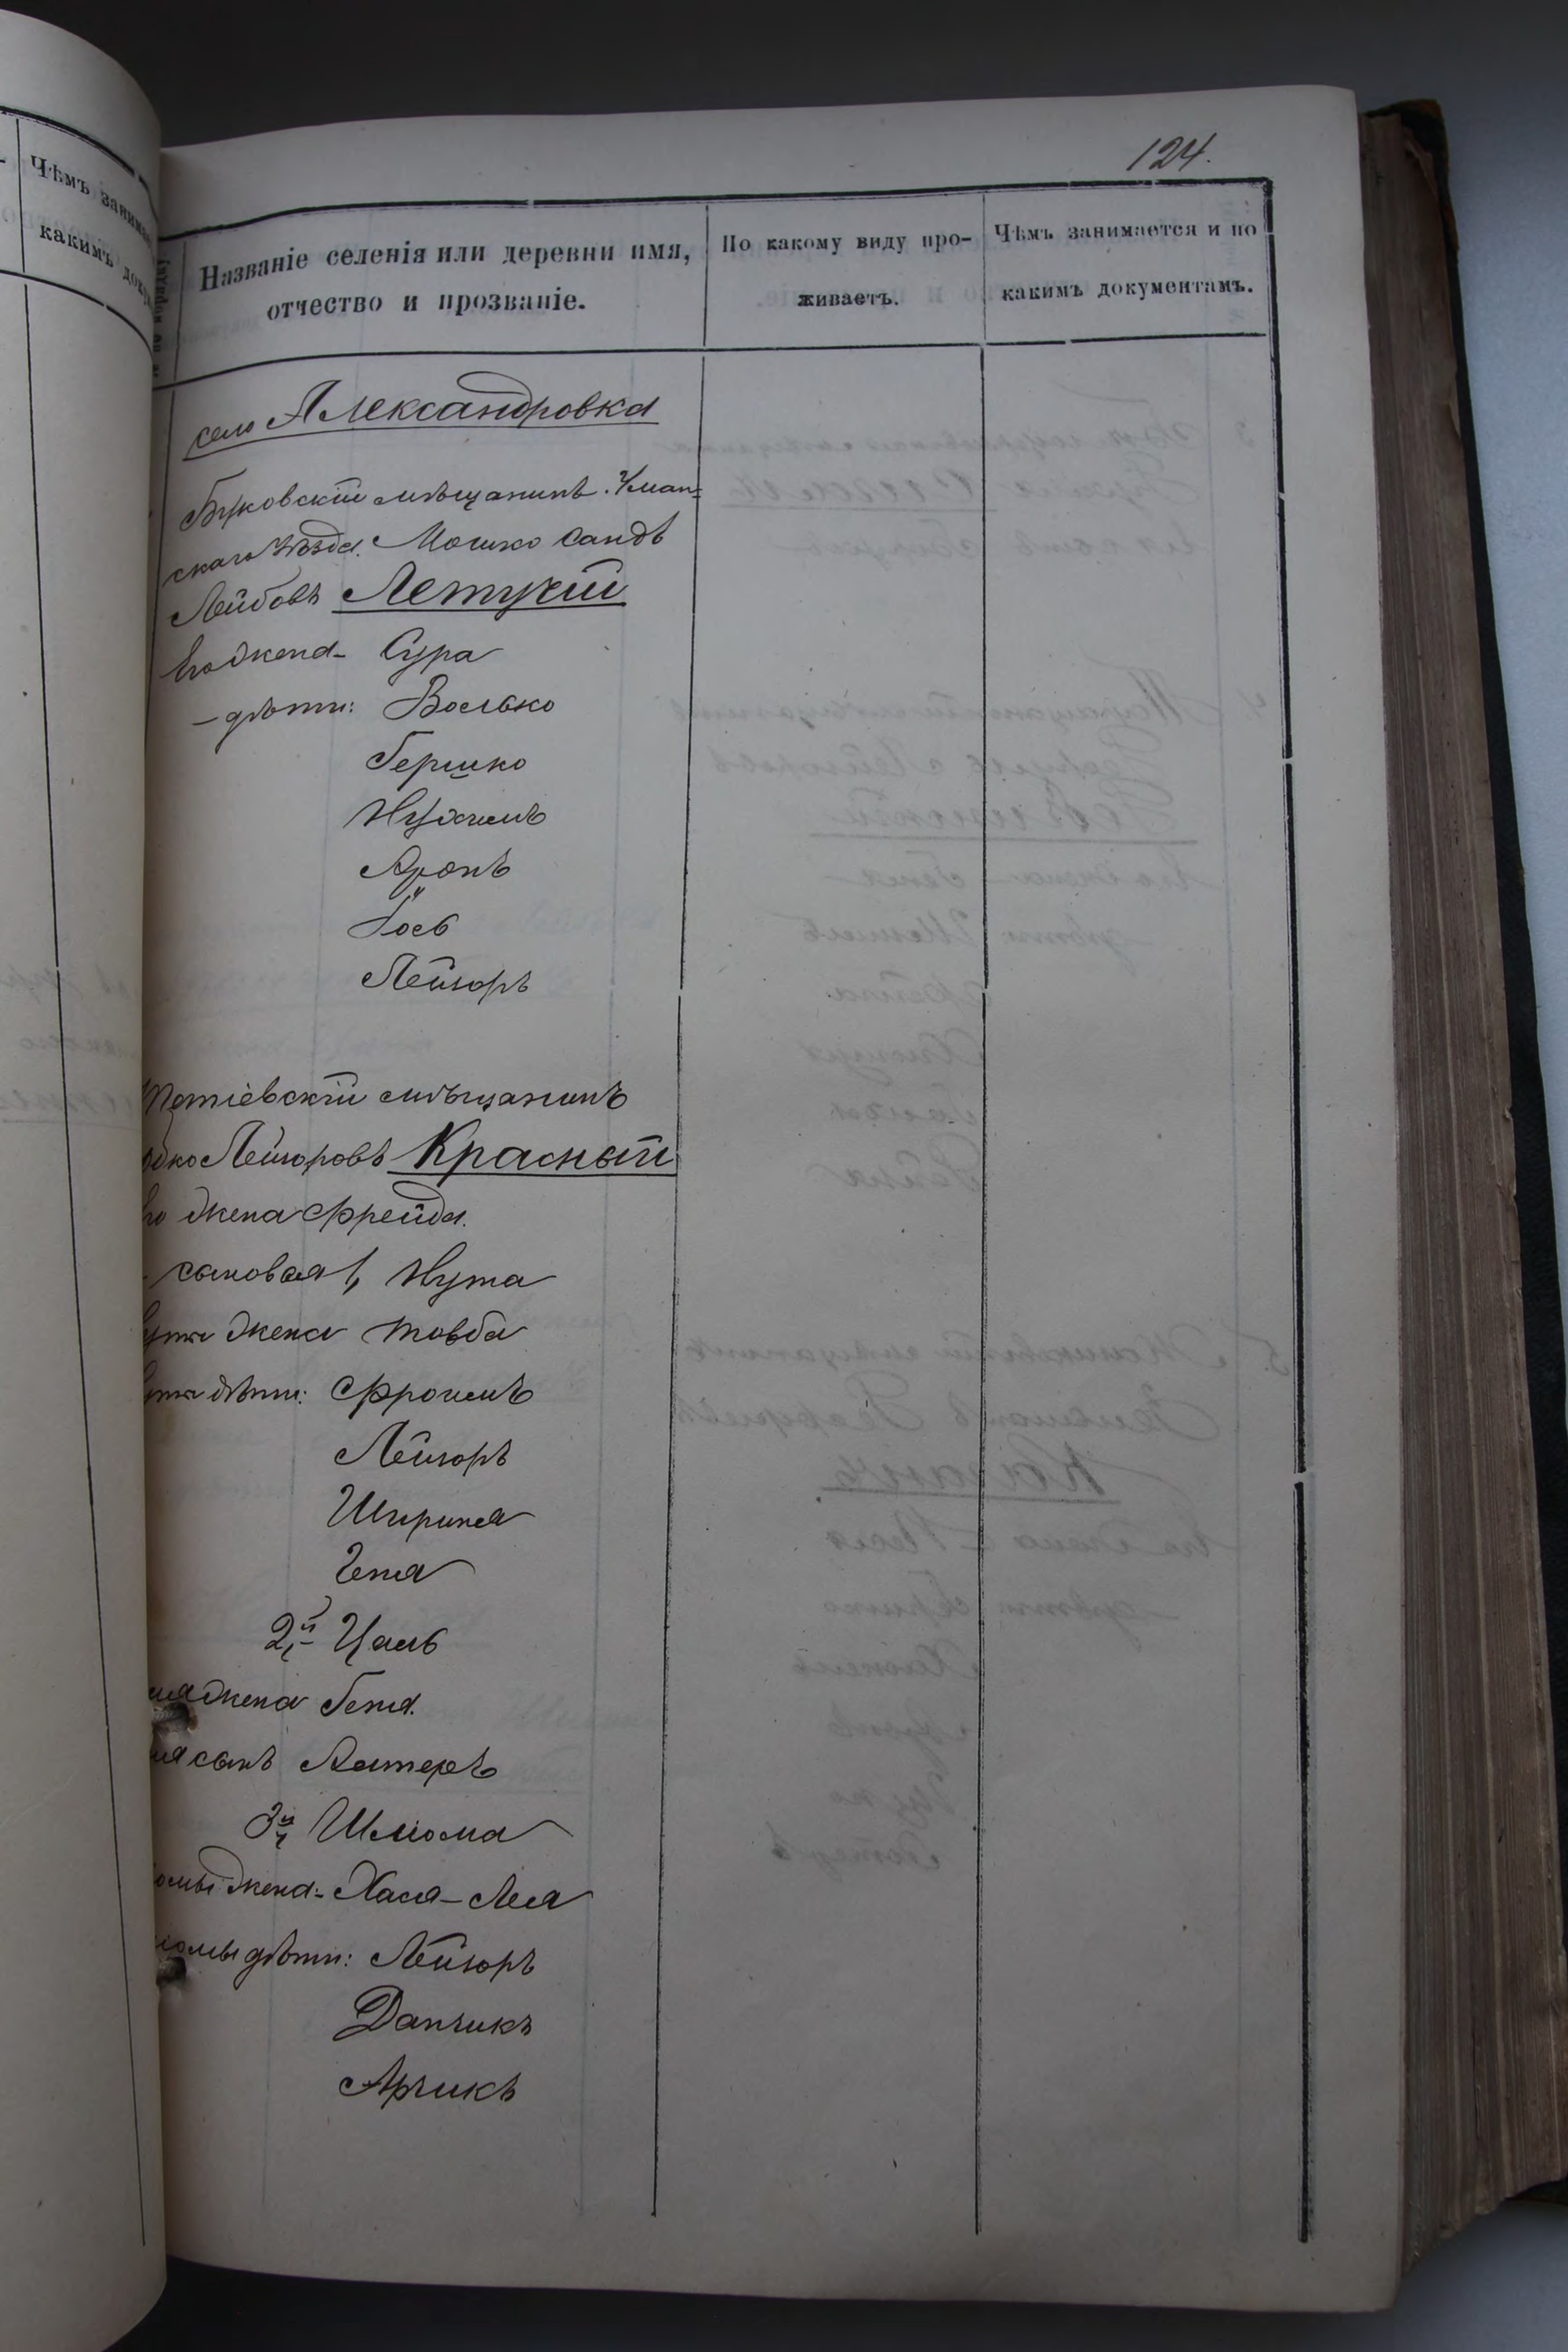 124.
Чѣмъ
какимъ
Названіе селенія или деревни имя,
отчество и прозваніе.
По какому виду про-
живаетъ.
Чѣмъ занимается и по
какимъ документамъ.
село Александровка
Буковскій мѣщанинъ. Уман=
скаго уѣзда. Мошко Сандъ
Лейбовъ Летукій
Его жена - Сура
- дѣти: Волько
Гершко
Нухимъ
Аронъ
Іось
Лейзоръ
Тетіевскій мѣщанинъ
Лейзоровъ Красный
жена Фрейда.
сыновья 1, Нута
жена Товба
дѣти: Фроимъ
Лейзоръ
Шприня
Геня
2й Цаль
жена Геня.
сынъ Алтеръ
3й Шлiома
жена: Хася-Лея
дѣти: Лейзоръ
Данчикъ
Арчикъ